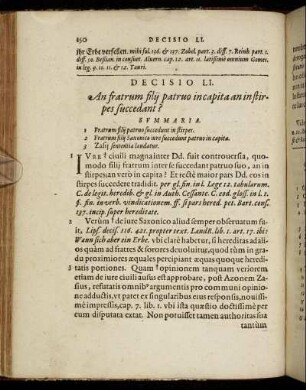 250 DECISIO LI.
ihr Erbe verfessen. mihi fol. 126. & 157. Zobel. part. 3. diff. 7. Reinh part. 1.
diff. 50.
in leg. 9. 11. & 12. Tauri.
DECISIO LI.
An fratrum filij patruo in capita an in stir-
pes succedant?
SVMMARIA.
1 Fratrum filij patruo succedunt in stirpes.
2 Fratrum filij Saxonico iure succedunt patruo in capita.
3 Zasij sententia laudatur.
1 IVRE † ciuili magna inter Dd. fuit controuersia, quo-
modo filij fratrum inter se succedant patruo suo, an in
stirpes, an verò in capita? Et rectè maior pars Dd. eos in
stirpes succedere tradidit. per gl. fin. in l. Lege 12. tabularum.
C. de legit. heredib. & gl. in Auth. Cessante. C. eod. glos. in l. 1.
§. fin. in verb. vindicationem. ff. si pars hered. pet. Bart. cons.
137. incip. super hereditate.
2 Verùm † de iure Saxonico aliud semper obseruatum fu-
it, Lips. decis. 216. 421. propter text. Landt. lib. 1. art. 17. ibi:
Wann sich aber ein Erbe. vbi clarè habetur, si hereditas ad ali-
quàm ad fratres & sorores deuoluitur, quòd tum illi gradu
propinquiores masculi æquè percipiant æquas quoque heredi-
3 tatis portiones. Quam † opinionem tanquam veriorem
etiam de iure ciuili ausus est approbare, post Azonem Za-
sius, refutatis omnib⁹ argumentis pro communi opinio-
ne adductis, vt patet ex singularibus eius responsis, nouis-
simè impressis, cap. 7. lib. 1. vbi ista quæstio doctissimè per
eum disputata extat. Non potuisset tamen authoritas sua
tantum